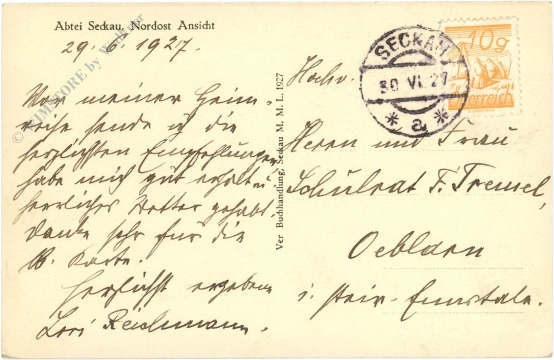 Abtei Seckau, Nordost Ansicht
29. 6. 1927.
Vor meiner Heim-
reise sende ich die
herzlichsten Empfehlungen
habe mich gut erholt u
herrliches Wetter gehabt.
Danke sehr für die
lb. Karte.
Herzlichst ergebene
Lori Reichmann.
Ver Buchhandlung, Seckau M. M. L. 1927
SECKAU
30 VI. 27
* a *
10 g
Österreich
Hochw.
Herrn und Frau
Schulrat F. Tremel,
Oeblarn
i. steir. Ennstale.